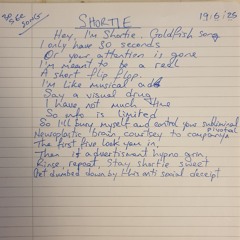 SHORTIE
19/6/25
SONG
Hey, I'm Shortie. Goldfish song
I only have 30 seconds
Or your attention is gone
I'm meant to be a reel
A short flip flipp.
I'm like musical ads
Say a visual drug
I have, not much time
So info is limited
So I'll bury myself and control your subliminal
Neuroplastic, brain, courtesy to company's
pivotal
The first five, lock you in,
Then it advertisment hypno grin,
Rinse, repeat, Stay shortie sweet
Get dumbed down by this anti social deceipt